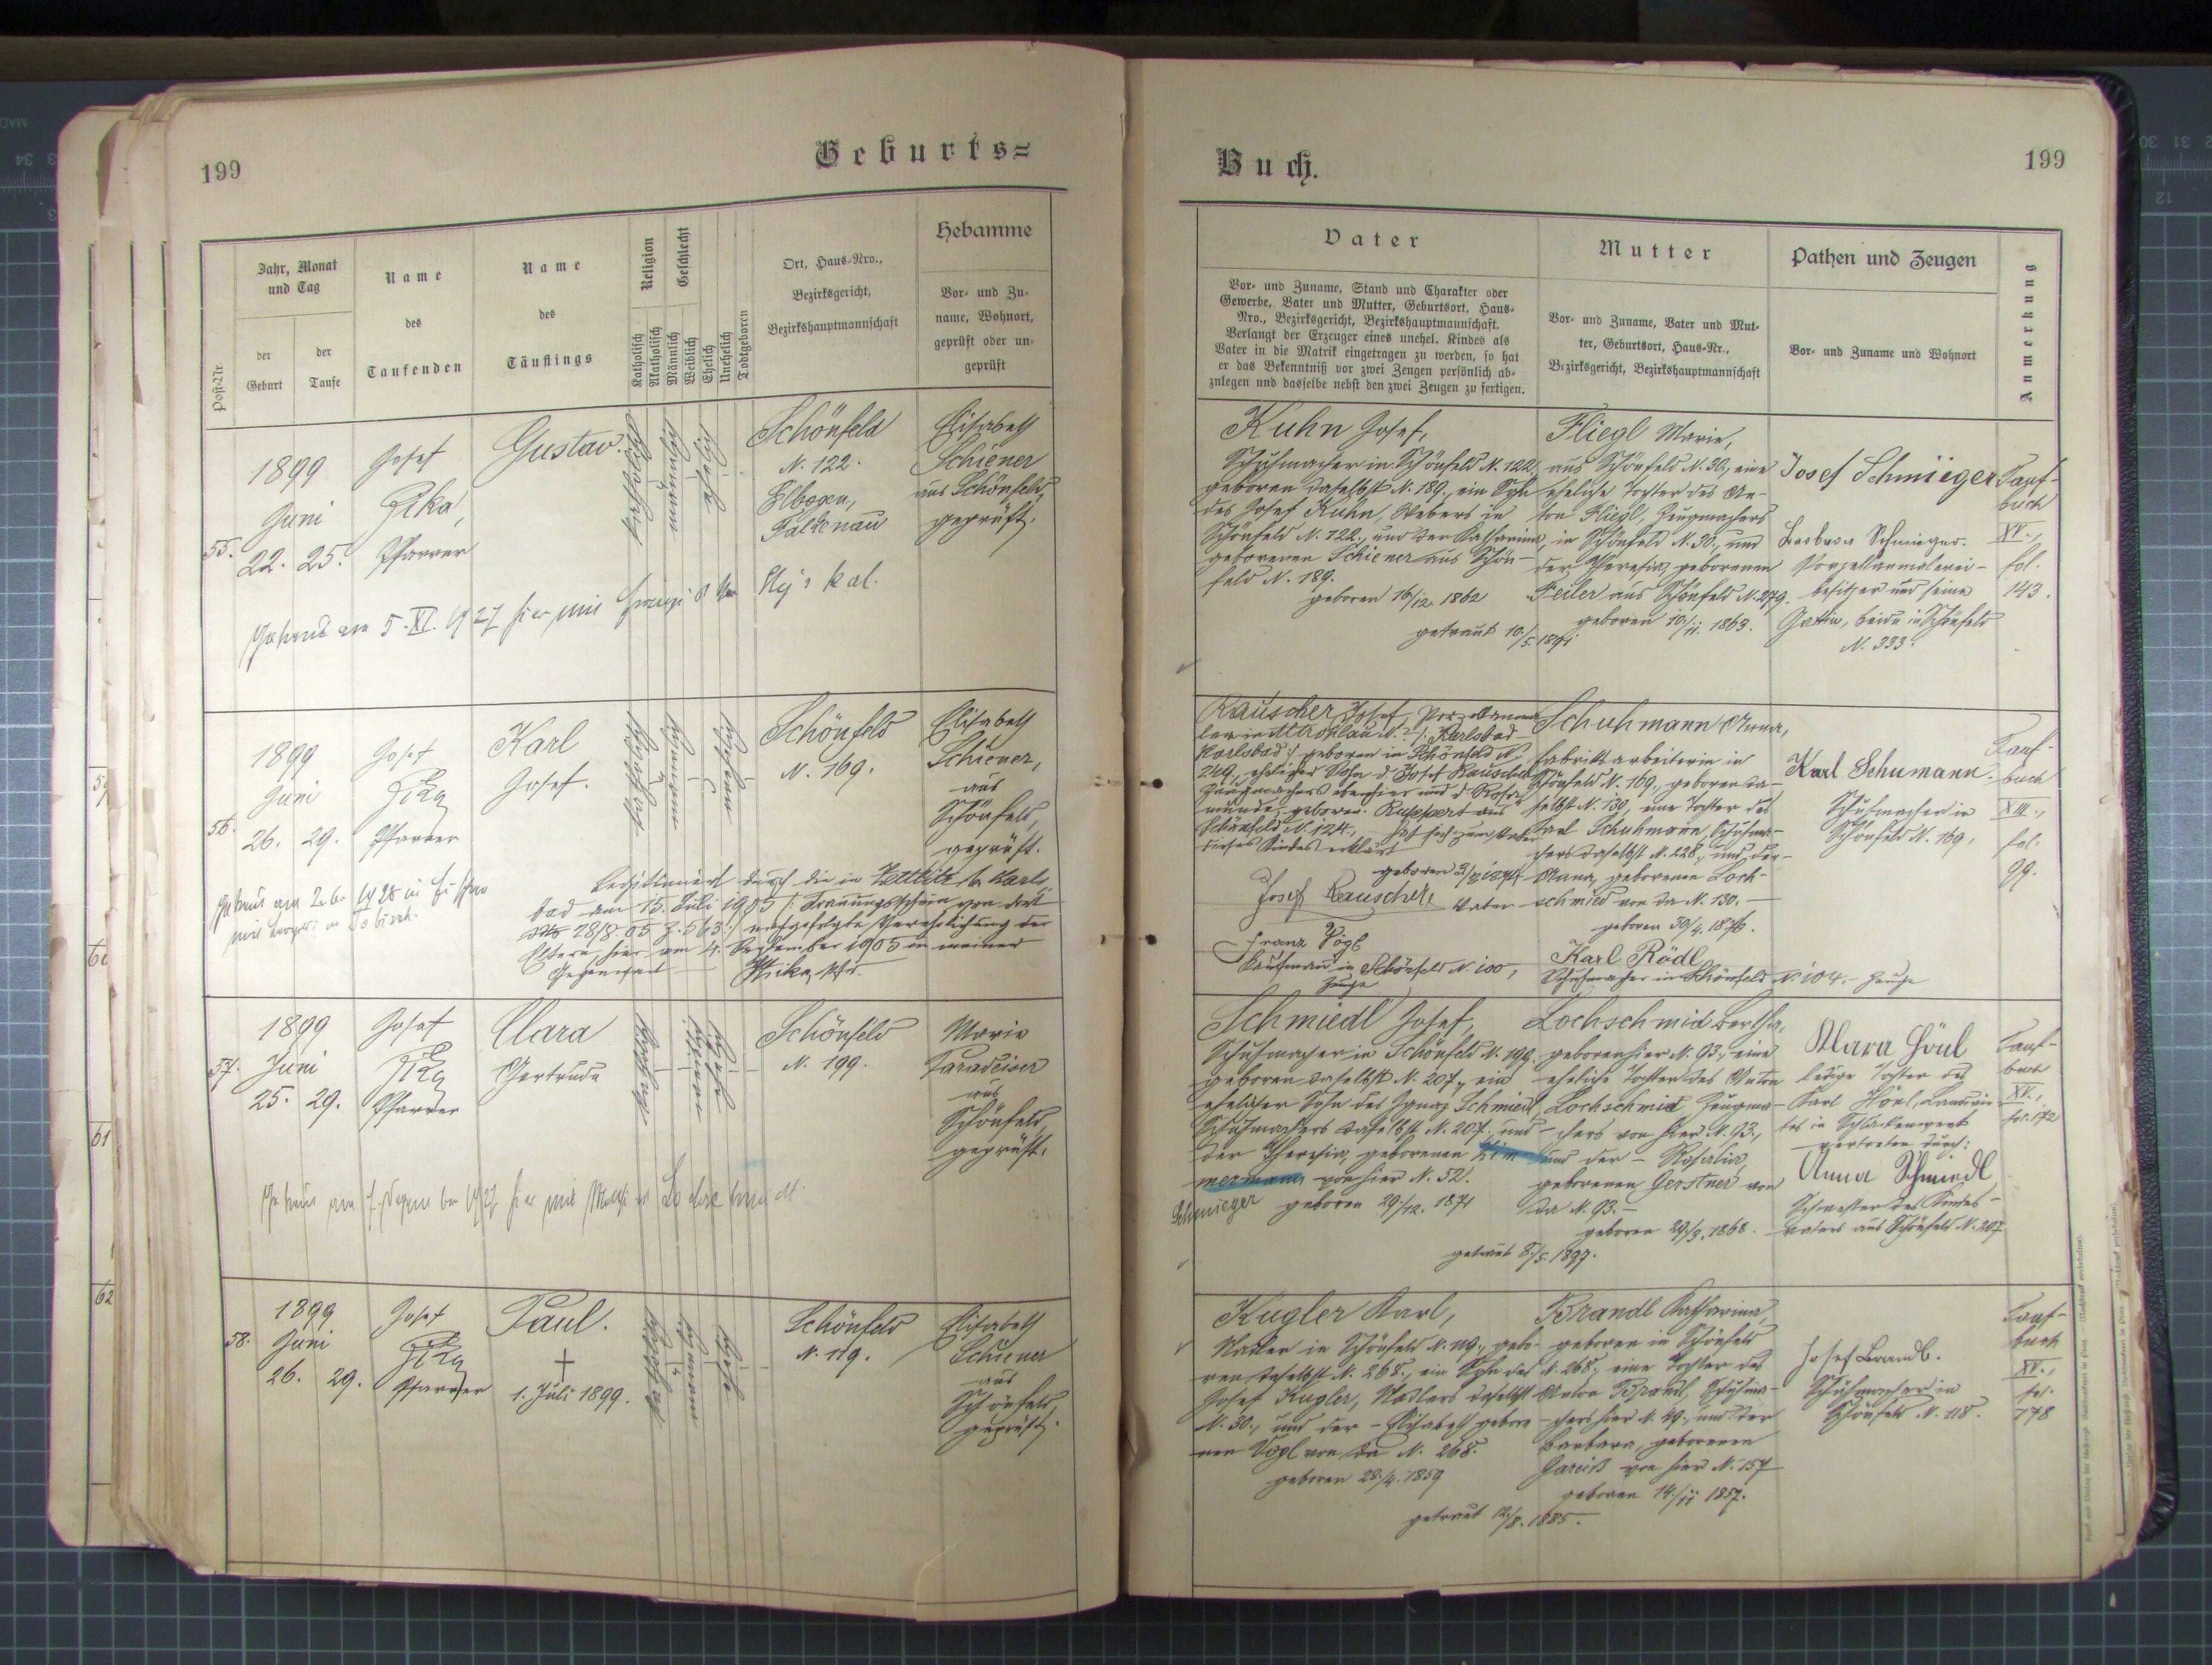 199
Geburts=
Post-Nr.
Jahr, Monat
und Tag
der
Geburt
der
Taufe
Name
des
Taufenden
Name
des
Täuflings
Religion
Katholisch
Akatholisch
Geschlecht
Männlich
Weiblich
Ehelich
Unehelich
Todtgeboren
Ort, Haus-Nro.,
Bezirksgericht,
Bezirkshauptmannschaft
Hebamme
Vor- und Zu-
name, Wohnort,
geprüft oder un-
geprüft
55.
1899
Juni
22. 25.
Josef
Pfarrer
Gustav.
katholisch
männlich
ehelich
Schönfeld
N. 122.
Elbogen,
Falkenau
Elisabeth
Schiener
aus Schönfeld,
geprüft.
Getraut am 5. XI. 1927 hier mit
56.
1899
Juni
26. 29.
Josef
Pfarrer
Karl
Josef.
Schönfeld
N. 169.
Elisabeth
Schiener,
aus
Schönfeld,
geprüft.
Getraut am 2. 6. 1928 in
Legitimiert durch die in
bad am 15. Juli 1905 /: Trauungsschein von dort
28/8 05 Z. 563 :/ nachgefolgte Verehelichung der
Eltern, hier am 4. September 1905 in meiner
Gegenwart
57.
1899
Juni
25. 29.
Josef
Pfarrer
Clara
Gertrude
Schönfeld
N. 199.
Marie
Paradeiser
aus
Schönfeld,
geprüft.
Getraut am 7. 1927 hier mit
58.
1899
Juni
26. 29.
Josef
Pfarrer
Paul.
1. Juli 1899.
Schönfeld
N. 119.
Elisabeth
Schiener
aus
Schönfeld,
geprüft.
Buch.
199
Vater
Vor- und Zuname, Stand und Charakter oder
Gewerbe, Vater und Mutter, Geburtsort, Haus-
Nro., Bezirksgericht, Bezirkshauptmannschaft.
Verlangt der Erzeuger eines unehel. Kindes als
Vater in die Matrik eingetragen zu werden, so hat
er das Bekenntniß vor zwei Zeugen persönlich ab-
zulegen und dasselbe nebst den zwei Zeugen zu fertigen.
Mutter
Vor- und Zuname, Vater und Mut-
ter, Geburtsort, Haus-Nr.,
Bezirksgericht, Bezirkshauptmannschaft
Pathen und Zeugen
Vor- und Zuname und Wohnort
Anmerkung
Kuhn Josef,
Schuhmacher in Schönfeld N. 122,
geboren daselbst N. 189., ein Sohn
des Josef Kuhn, Webers in
Schönfeld N. 122., und der Katharina,
geborenen Schiener aus Schön-
feld N. 189.
geboren 16/12. 1862
Fliegl Marie,
aus Schönfeld N. 30., eine
eheliche Tochter des An-
ton Fliegl, Zeugmachers
in Schönfeld N. 30., und
der Theresia, geborenen
Feiler aus Schönfeld N. 279.
geboren 10/11. 1863.
getraut 10/5. 1891
Josef Schmieger
Barbara Schmieger.
Porzellanmalerei-
besitzer und seine
Gattin, beide in Schönfeld
N. 333.
Tauf-
buch
XV.,
fol.
143.
Rauscher Josef,
Karlsbad :/ geboren in Schönfeld N.
249., ehelicher Sohn d. Josef Rauscher
Zeugmachers
geboren. Ruppert aus
Schönfeld N. 124., hat sich zum Vater
dieses Kindes erklärt
Josef Rauscher, Vater
Franz Vogl
Kaufmann in Schönfeld N. 100,
Zeuge
Schuhmann Anna,
Fabriksarbeiterin in
Schönfeld N. 169., geboren da-
selbst N. 130, eine Tochter des
Karl Schuhmann, Schuhma-
chers daselbst N. 228., und der
Anna, geborenen Loch-
schmied von da N. 130.
geboren 30/4. 1876.
Karl Rödl
Schuhmacher in Schönfeld N. 104. Zeuge
Karl Schumann.
Schuhmacher in
Schönfeld N. 169,
Tauf-
buch
XIII.,
fol.
99.
Schmiedl Josef,
Schuhmacher in Schönfeld N. 199.
geboren daselbst N. 207., ein
ehelicher Sohn des Ignaz Schmiedl,
Schuhmachers daselbst N. 207., und
der Theresia, geborenen Zim-
mermann von hier N. 52.
Schmieger geboren 29/12. 1871
Lochschmid Bertha,
geboren hier N. 93., eine
eheliche Tochter des Anton
Lochschmid, Zeugma-
chers von hier N. 93.,
und der Rosalia,
geborenen Gerstner von
da N. 93.
geboren 29/9. 1868.
getraut 8/5. 1897.
Klara Hönl
ledige Tochter des
Karl Hönl,
in Schlackenwerth
vertreten durch:
Anna Schmiedl
Schwester des Kindes-
vaters aus Schönfeld N. 207
Tauf-
buch
XV.,
fol. 172
Kugler Karl,
Nadler in Schönfeld N. 119., gebo-
ren daselbst N. 268., ein Sohn des
Josef Kugler, Nadlers daselbst
N. 30., und der Elisabeth gebore-
nen Vogl von da N. 268.
geboren 28/4. 1859
Brandl Katharina,
geboren in Schönfeld
N. 268., eine Tochter des
Anton Brandl, Schuhma-
chers hier N. 49., und der
Barbara, geborenen
Gareiß von hier N. 157
geboren 14/11 1857.
getraut 12/8. 1885.
Josef Brandl.
Schuhmacher in
Schönfeld N. 118.
Tauf-
buch
XV.,
fol.
178